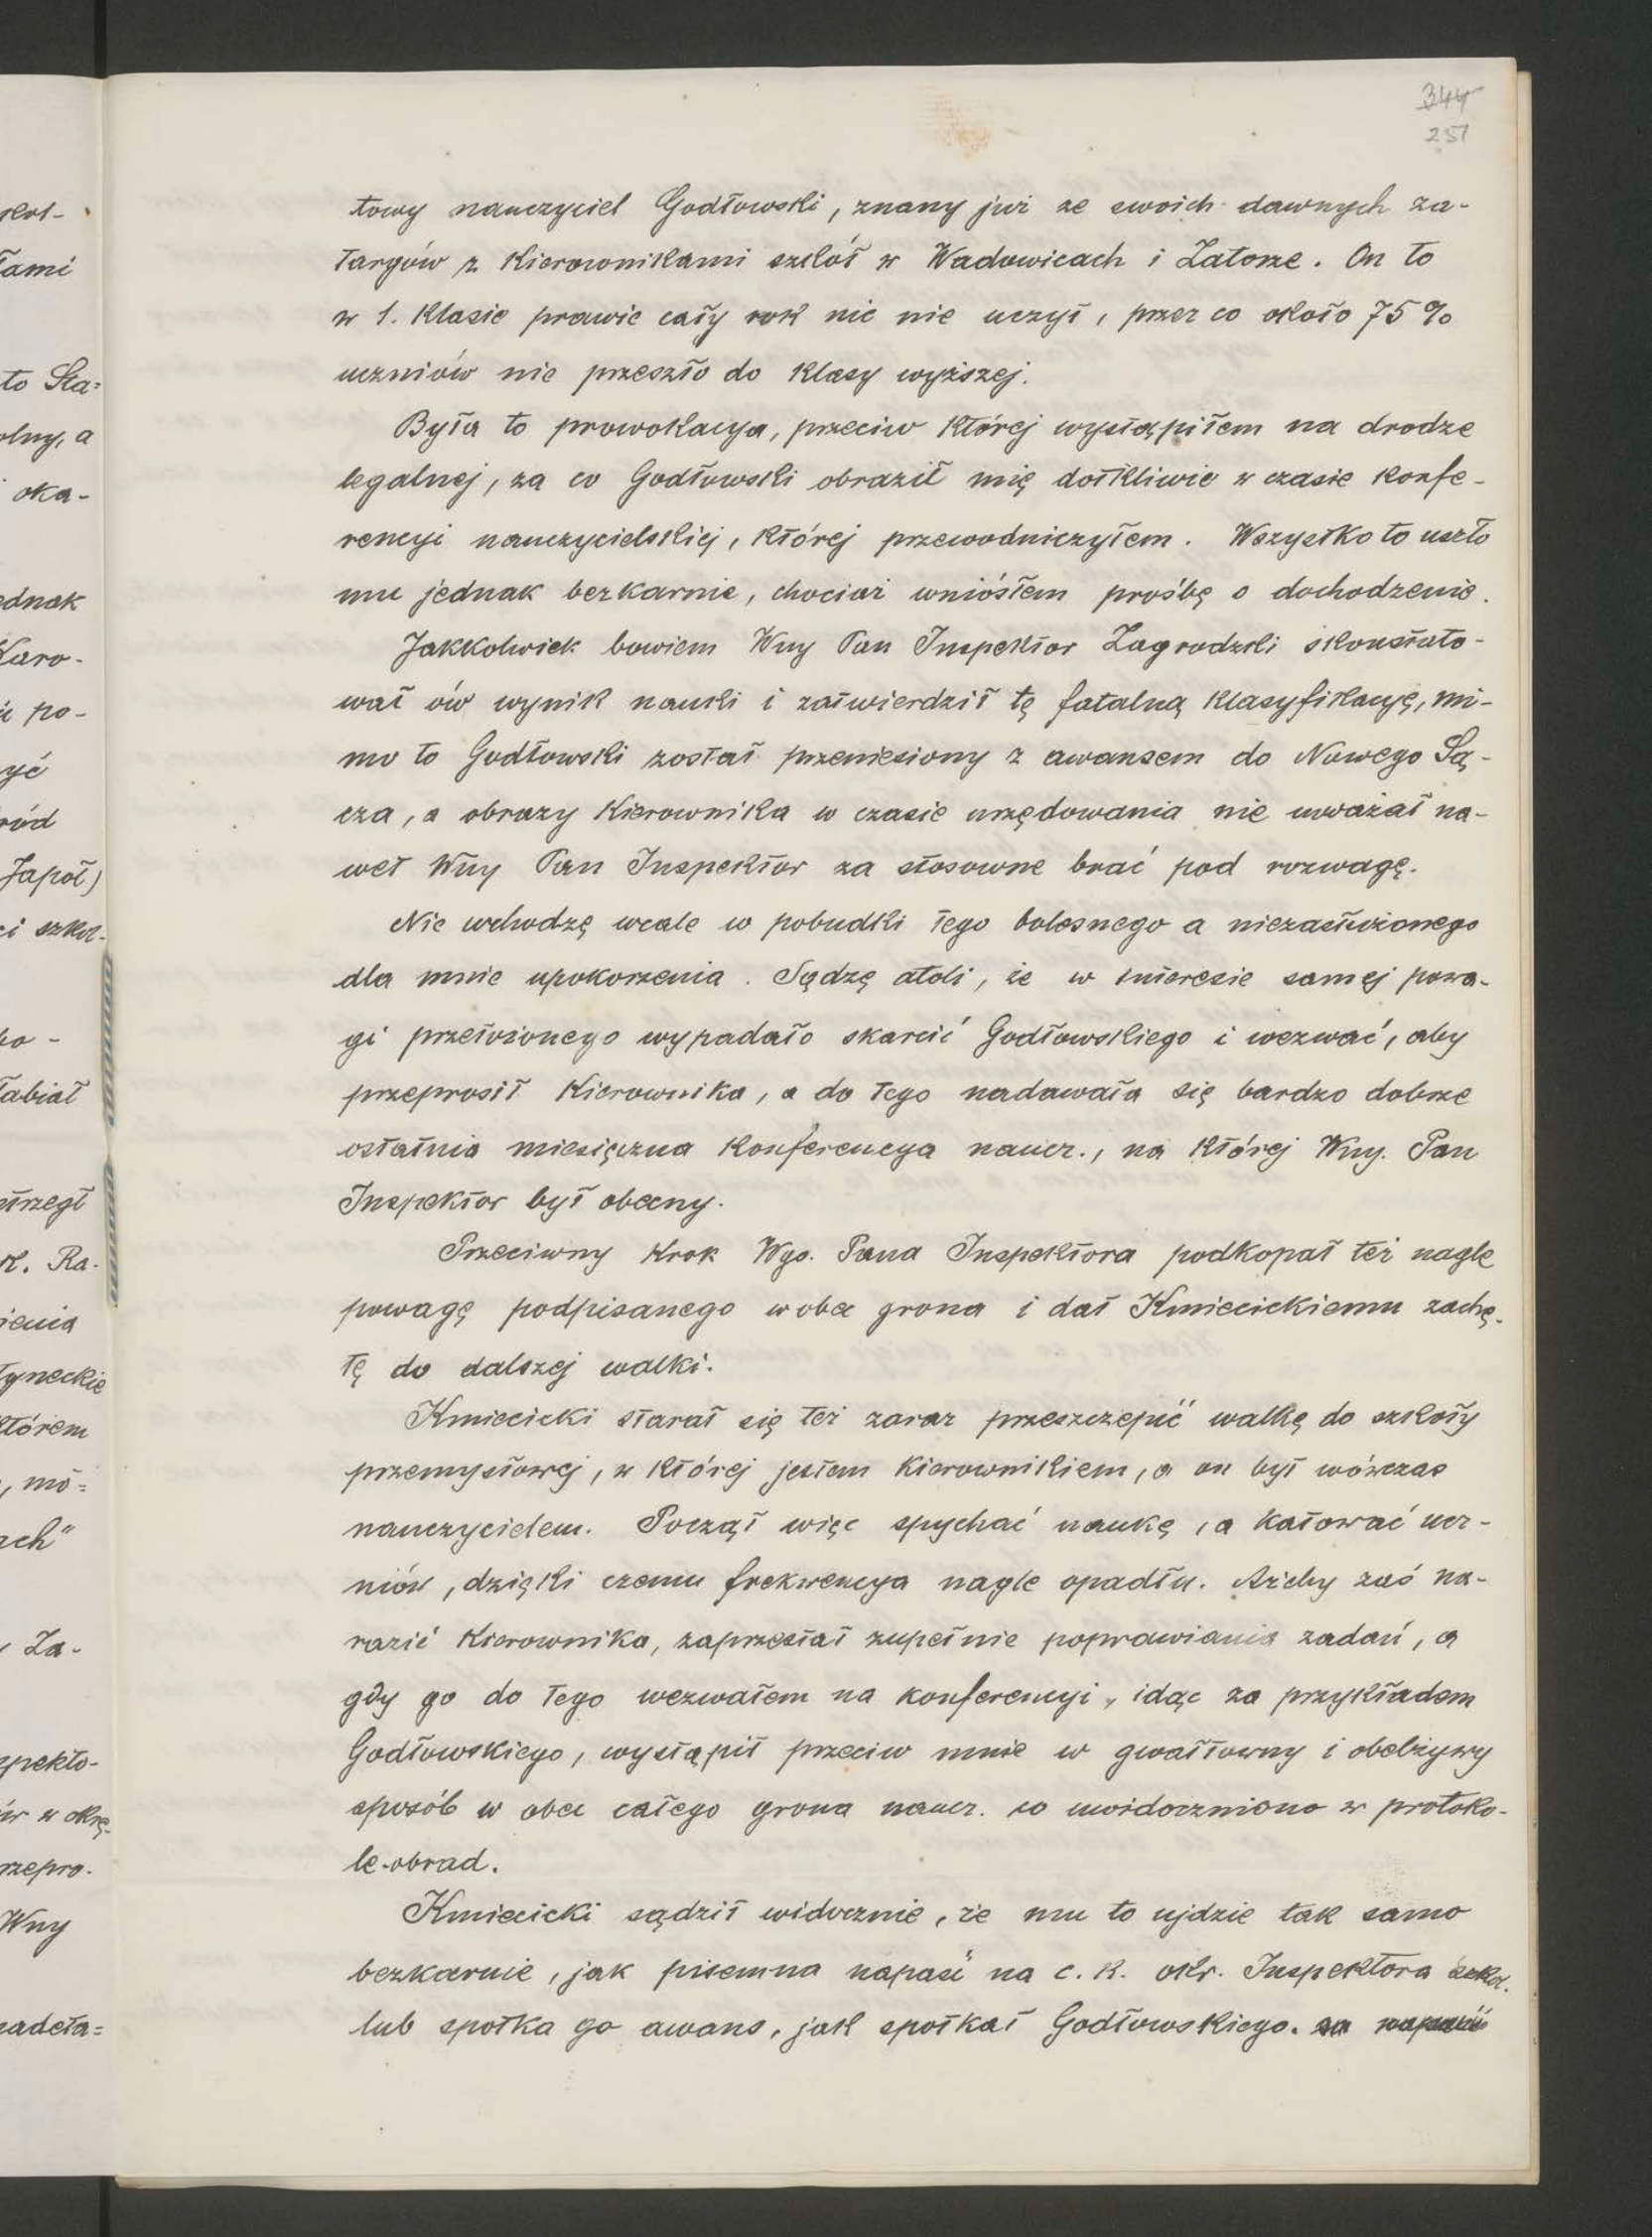 344
251
towy nauczyciel Godłowski, znany już ze swoich dawnych za-
targów z Kierownikami szkół w Wadowicach i Zatorze. On to
w 1. klasie prawie cały rok nic nie uczył, przez co około 75%
uczniów nie przeszło do klasy wyższej.
Była to prowokacya, przeciw której wystąpiłem na drodze
legalnej, za co Godłowski obraził mię dotkliwie w czasie konfe-
rencyi nauczycielskiej, której przewodniczyłem. Wszystko to uszło
mu jednak bezkarnie, chociaż wniósłem prośbę o dochodzenie.
Jakkolwiek bowiem Wny Pan Inspektor Zagrodzki skonstato-
wał ów wynik nauki i zatwierdził tę fatalną klasyfikacyę, mi-
mo to Godłowski został przeniesiony z awansem do Nowego Są-
cza, a obrazy Kierownika w czasie urzędowania nie uważał na-
wet Wny Pan Inspektor za stosowne brać pod rozwagę.
Nie wchodzę wcale w pobudki tego bolesnego a niezasłużonego
dla mnie upokorzenia. Sądzę atoli, że w interesie samej powa-
gi przełożonego wypadało skarcić Godłowskiego i wezwać, aby
przeprosił Kierownika, a do tego nadawała się bardzo dobrze
ostatnia miesięczna konferencya naucz., na której Wny. Pan
Inspektor był obecny.
Przeciwny krok Wgo. Pana Inspektora podkopał też nagle
powagę podpisanego wobec grona i dał Kmiecickiemu zachę-
tę do dalszej walki.
Kmiecicki starał się też zaraz przeszczepić walkę do szkoły
przemysłowej, w której jestem kierownikiem, a on był wówczas
nauczycielem. Począł więc spychać naukę, a katować ucz-
niów, dzięki czemu frekwencya nagle opadła. Ażeby zaś na-
razić Kierownika, zaprzestał zupełnie poprawiania zadań, a
gdy go do tego wezwałem na konferencyi, idąc za przykładem
Godłowskiego, wystąpił przeciw mnie w gwałtowny i obelżywy
sposób w obec całego grona naucz. co uwidoczniono w protoko-
le obrad.
Kmiecicki sądził widocznie, że mu to ujdzie tak samo
bezkarnie, jak pisemna napaść na c. k. okr. Inspektora szkol.
lub spotka go awans, jak spotkał Godłowskiego. za napaść